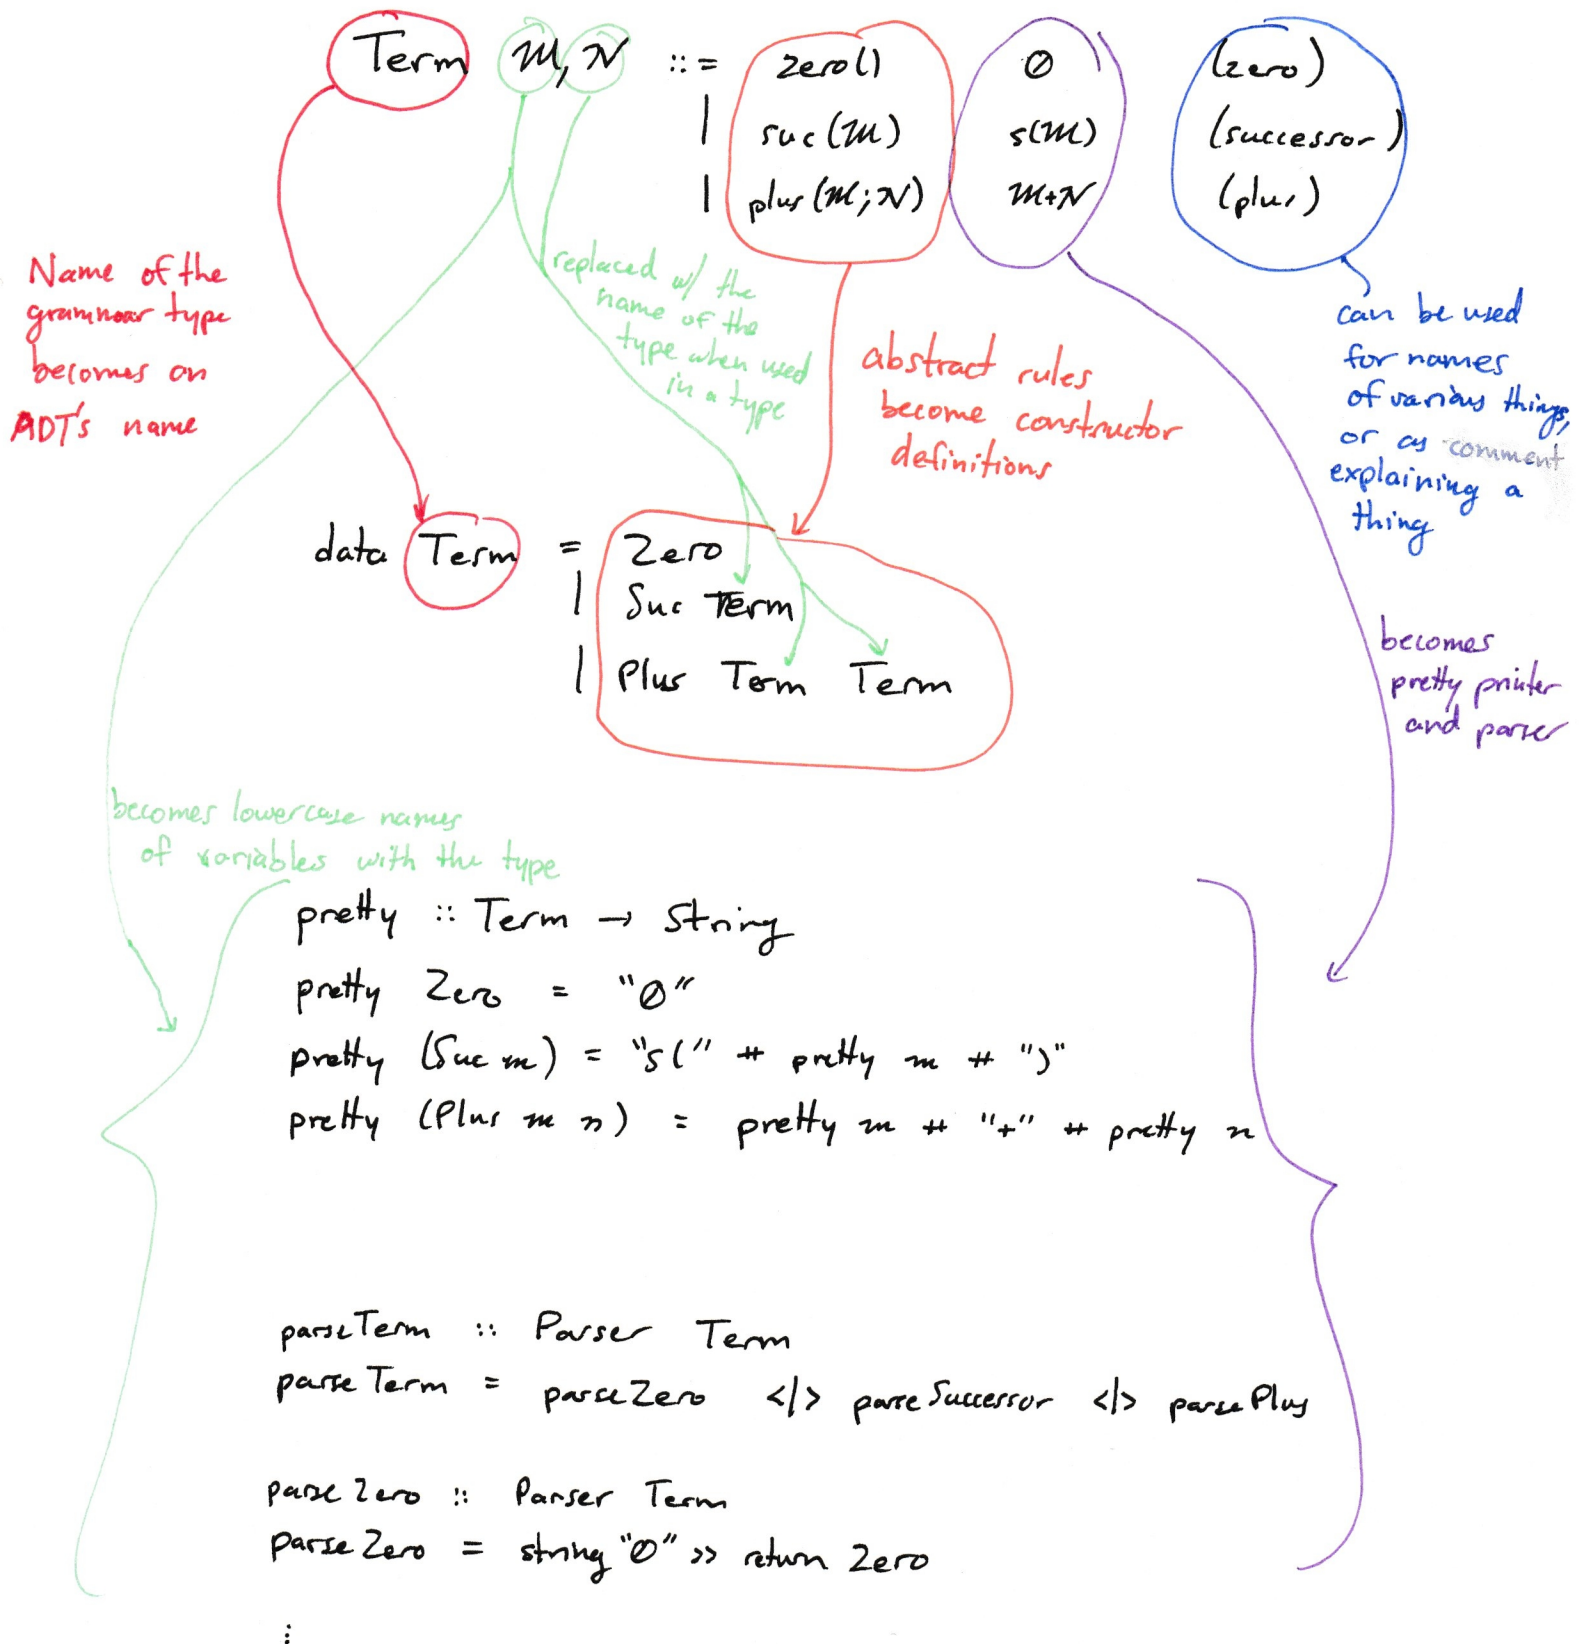 Term M, N ::= zero() 0 (zero)
| suc(M) s(M) (successor)
| plus(M;N) M+N (plus)
Name of the
grammar type
becomes an
ADT's name
replaced w/ the
name of the
type when used
in a type
abstract rules
become constructor
definitions
can be used
for names
of various things,
or as comment
explaining a
thing
data Term = Zero
| Suc Term
| Plus Term Term
becomes
pretty printer
and parser
becomes lowercase names
of variables with the type
pretty :: Term → String
pretty Zero = "0"
pretty (Suc m) = "s(" ++ pretty m ++ ")"
pretty (Plus m n) = pretty m ++ "+" ++ pretty n
parseTerm :: Parser Term
parseTerm = parseZero <|> parseSuccessor <|> parsePlus
parseZero :: Parser Term
parseZero = string "0" >> return Zero
⋮